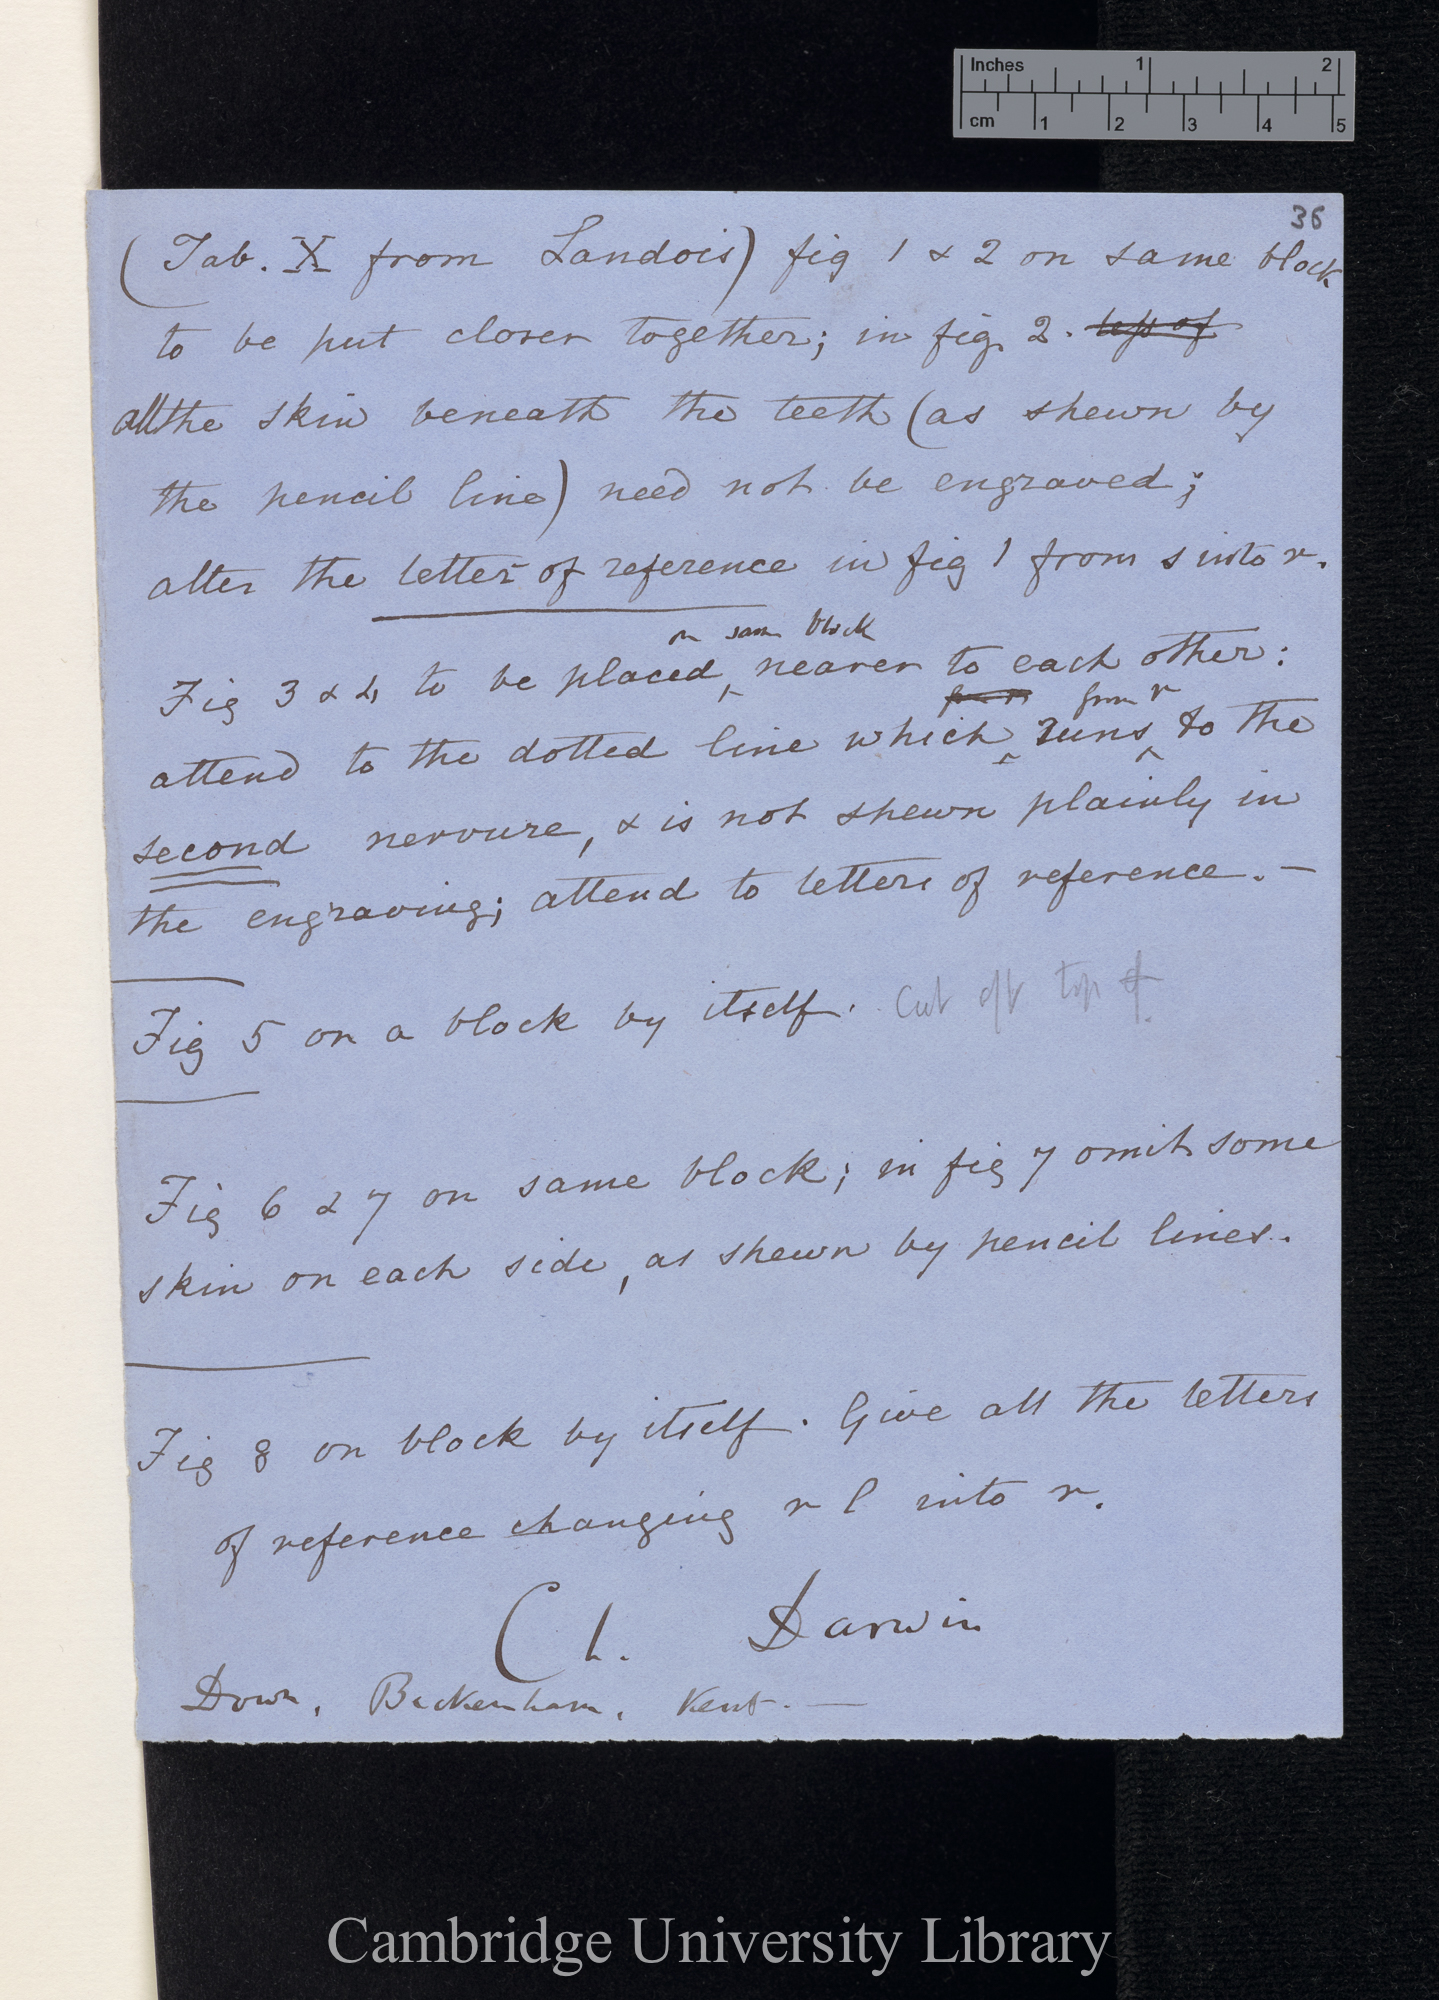 Inches 1 2
cm 1 2 3 4 5
36
(Tab. X from Landois) fig 1 & 2 on same block
to be put closer together; in fig. 2. left of
all the skin beneath the teeth (as shewn by
the pencil line) need not be engraved;
alter the letters of reference in fig 1 from s into r.
on same block
Fig 3 & 4, to be placed, nearer to each other:
from r from r
attend to the dotted line which runs to the
second nervure, & is not shewn plainly in
the engraving; attend to letters of reference. —
Fig 5 on a block by itself. Cut off top of.
Fig 6 & 7 on same block; in fig 7 omit some
skin on each side, as shewn by pencil lines.
Fig 8 on block by itself. Give all the letters
of reference changing r l into r.
Ch. Darwin
Down, Beckenham, Kent. —
Cambridge University Library